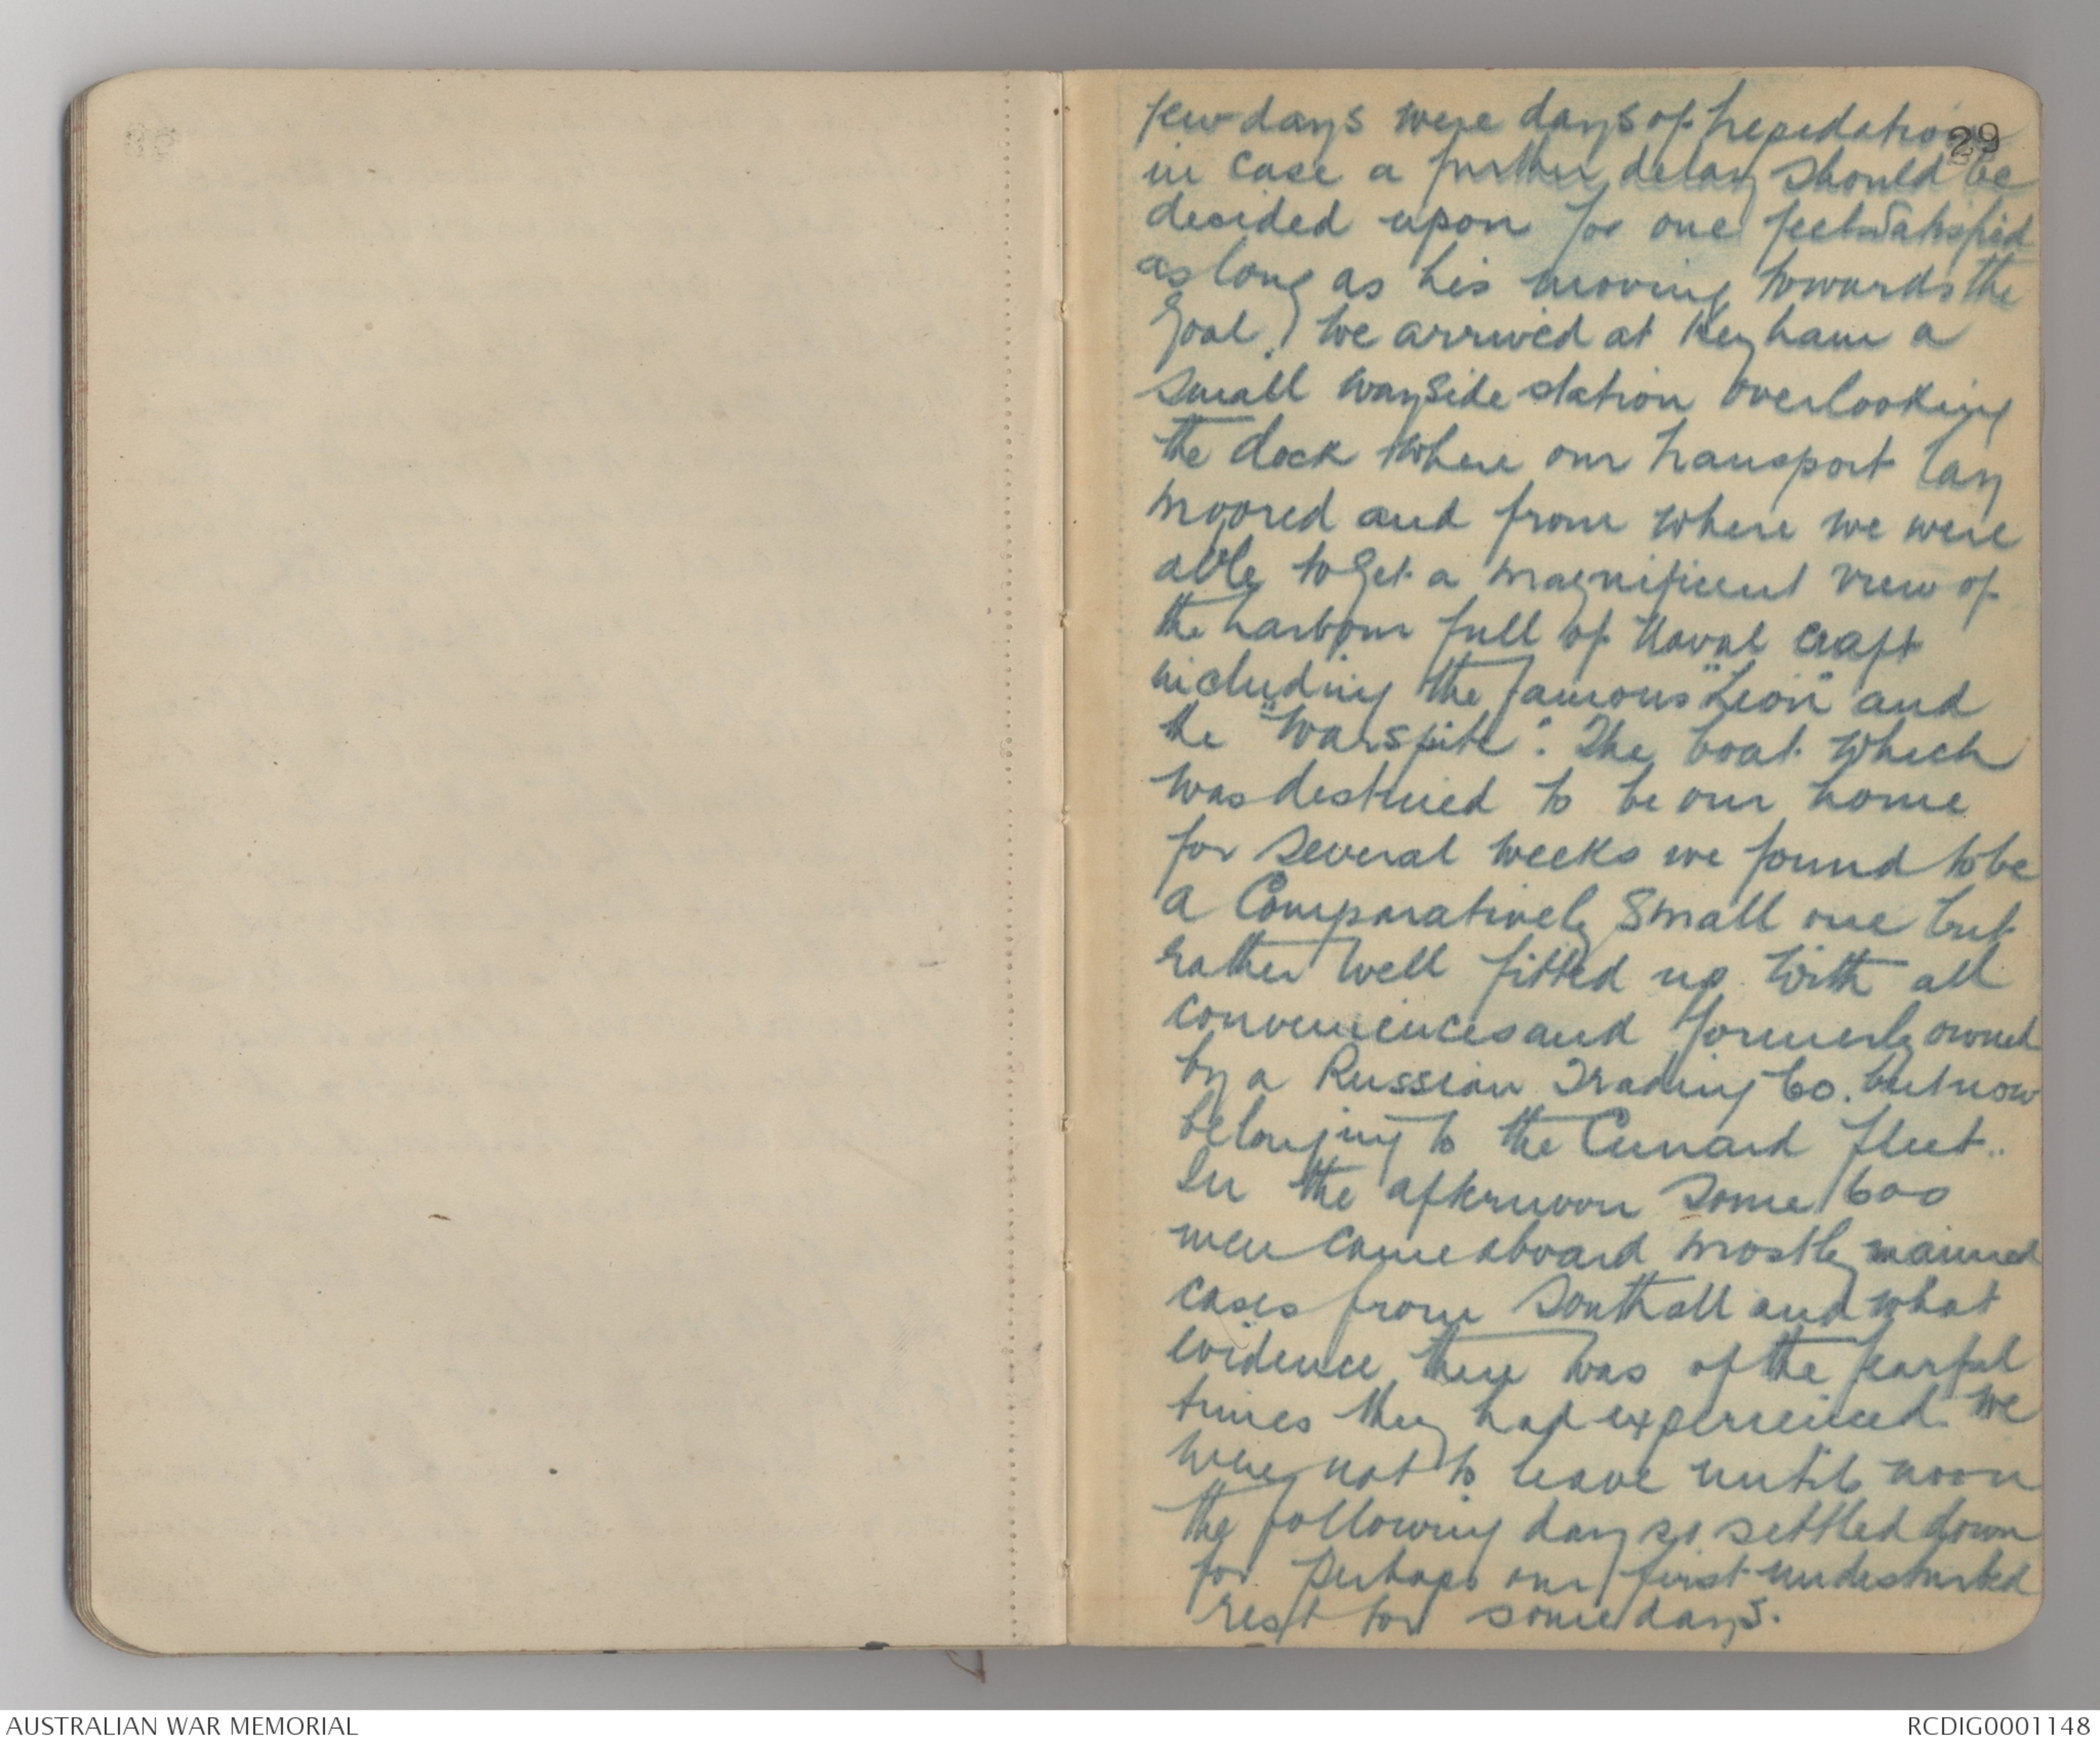 29
few days were days of trepidation
in case a further delay should be
decided upon for one feels satisfied
as long as his moving towards the
Goal. We arrived at Keyham a
small wayside station overlooking
the dock where our transport lay
moored and from where we were
able to get a magnificent view of
the harbour full of Naval craft
including the famous "Lion" and
the "Warspite". The boat which
was destined to be our home
for several weeks we found to be
a Comparatively Small one but
rather well fitted up with all
conveniences and formerly owned
by a Russian Trading Co. but now
belonging to the Cunard fleet..
In the afternoon some 600
men came aboard mostly maimed
cases from Southall and what
evidence there was of the fearful
times they had experienced. We
were not to leave until noon
the following day so settled down
for perhaps our first undisturbed
rest for some days.
AUSTRALIAN WAR MEMORIAL
RCDIG0001148